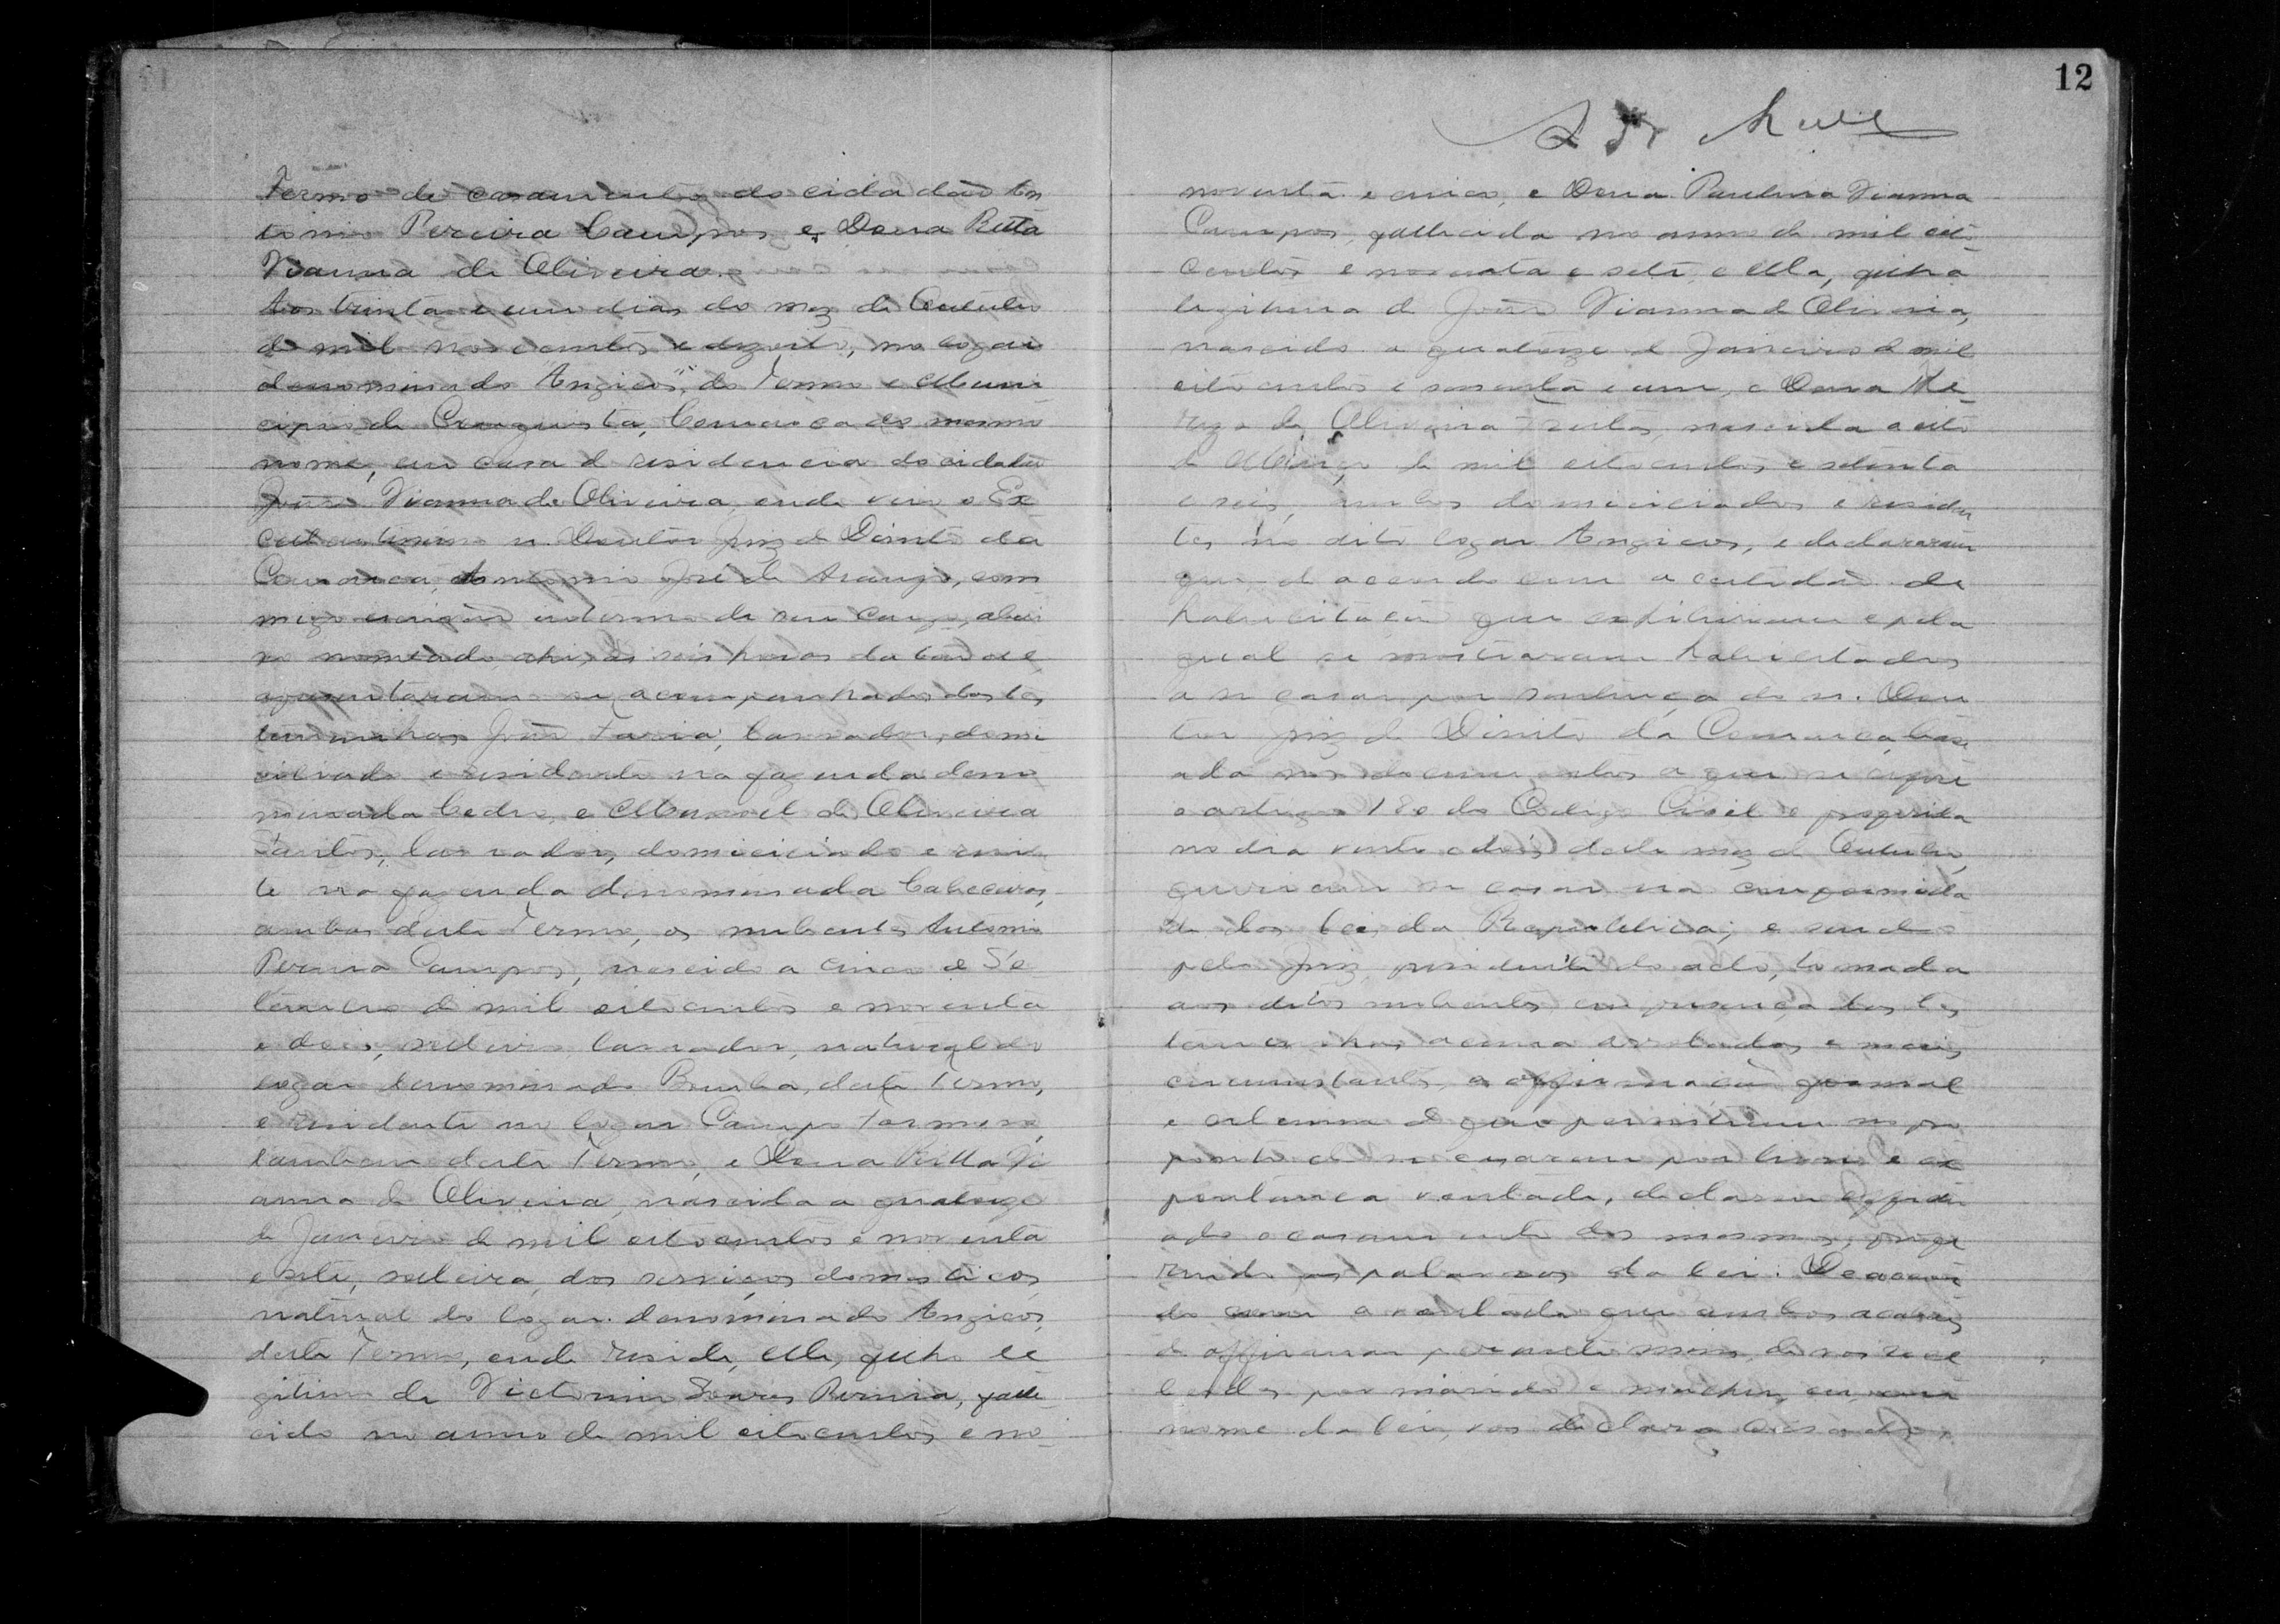 Termo de casamento do cidadão An
tonio Pereira Campos e Dona Ritta
Vianna de Oliveira.
Aos trinta e um dias do mez de Outubro
de mil novecentos e dezoito, no logar
denominado "Angicos", do Termo e Muni
cipio de Conquista, Comarca do mesmo
nome, em casa de residencia do cidadão
João Vianna de Oliveira, onde veio o Ex
cellentissimo sr. Doutor Juiz de Direito da
Comarca, Antonio José de Araujo, com
migo escrivão interino de seu cargo, abai
xo nomeado, ahi, ás seis horas da tarde
apresentaram se acompanhados das tes
temunhas João Faria, lavrador, domi
ciliado e residente na fazenda deno
minada Cedro, e Manoel de Oliveira
Freitas, lavrador, domiciciado e resid
te na fazenda denominada Cabeceiras,
ambas deste Termo, os nubentes Antonio
Pereira Campos, nascido a cinco de Se
tembro de mil oitocentos e noventa
e dois, solteiro, lavrador, natural do
logar denominado Bomba, deste Termo,
e residente no logar Campo Formoso,
tambem deste Termo, e Dona Ritta Vi
anna de Oliveira, nascida a quatorze
de Janeiro de mil oitocentos e noventa
e sete, solteira, dos serviços domesticos,
natural do logar denominado Angicos,
deste Termo, onde reside, elle, filho le
gitimo de Victorino Soares Pereira, falle
cido no anno de mil oitocentos e no
12
noventa e cinco, e Dona Paulina Vianna
Campos, fallecida no anno de mil oito
centos e noventa e sete, e ella, filha
legitima de João Vianna de Oliveira,
nascido a quatorze de Janeiro de mil
oitocentos e sessenta e um, e Dona The
reza de Oliveira Freitas, nascida a oito
de Março de mil oitocentos e setenta
e seis, ambos domiciciados e residen
tes no dito logar Angicos, e declararam
que, de accordo com a certidão de
habilitação que exhibiram e pela
qual se mostraram habilitados
a se casar por sentença do sr. Dou
tor Juiz de Direito da Comarca, base
ada nos documentos a que se refere
o artigo 180 do Codigo Civil e proferida
no dia vinte e dois deste mez de Outubro,
queriam se casar na conformida
de das leis da Republica; e sendo
pelo Juiz presidente do acto, tomada
aos ditos nubentes, em presença das tes
temunhas acima arroladas e mais
circumstantes, a affirmação formal
e externa de que persistiam no pro
posito de se casarem por livre e es
pontanea vontade, declarou effectu
ado o casamento dos mesmos, profe
rindo as palavras da lei: De accor
do com a vontade que ambos acabaes
de affirmar perante mim, de vos rece
berdes por marido e mulher, eu, em
nome da lei, vos declaro casados.